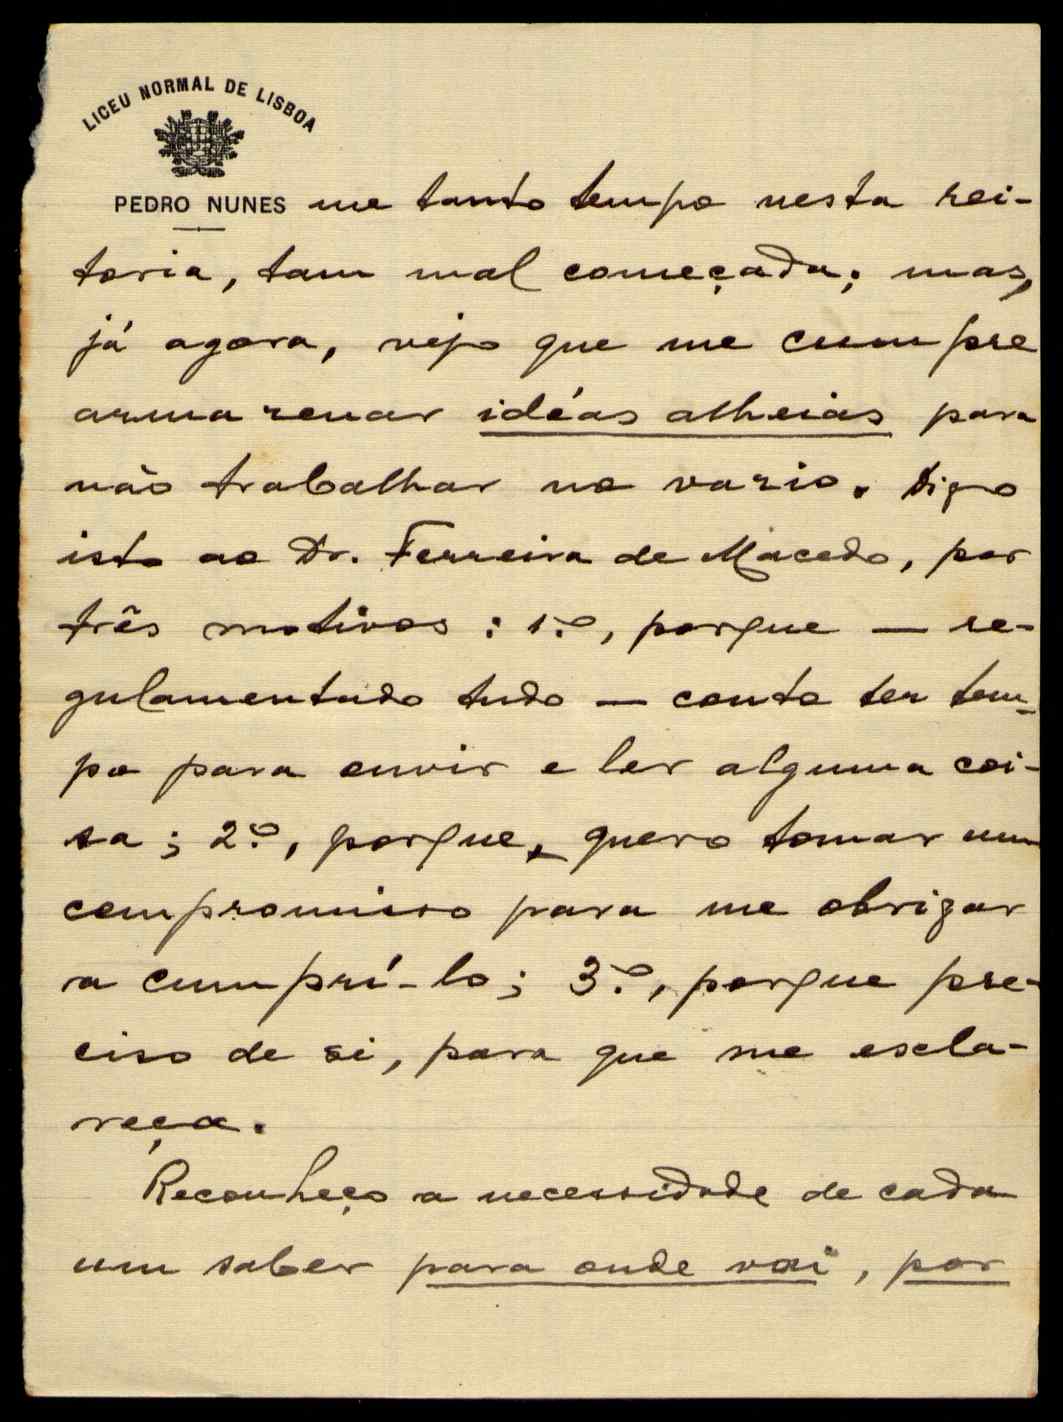 LICEU NORMAL DE LISBOA
PEDRO NUNES
me tanto tempo nesta rei-
toria, tam mal começada; mas,
já agora, vejo que me cumpre
armazenar idéas alheias para
não trabalhar no vazio. Digo
isto ao Dr. Ferreira de Macedo, por
três motivos: 1.º, porque — re-
gulamentado tudo — conto ter tem-
po para ouvir e ler alguma coi-
sa; 2.º, porque, quero tomar um
compromisso para me obrigar
a cumprí-lo; 3.º, porque pre-
ciso de si, para que me escla-
reça.
Reconheço a necessidade de cada
um saber para onde vai, por